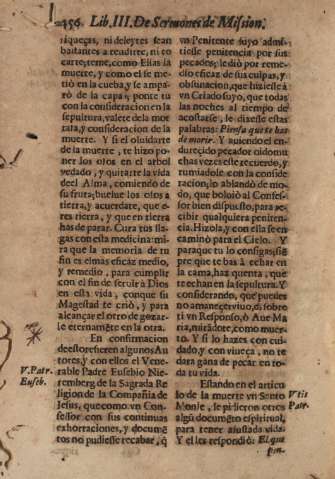 456 Lib. III. De Sermones de Mission.
riquezas, ni deleytes sean
bastantes a rendirte, ni en
carte; teme, como Elias la
muerte, y como el se me
tiò en la cueba, y se ampa
rò de la capa; ponte tu
con la consideracion en la
sepultura, valete de la mor
taja, y consideracion de la
muerte. Y si el olvidarte
de la muerte, te hizo po-
ner los ojos en el arbol
vedado, y quitarte la vida
del Alma, comiendo de
su fruta; buelve los ojos a
tierra, y acuerdate, que e-
res tierra, y que en tierra
has de parar. Cura tus lla-
gas con esta medicina: mi-
ra que la memoria de tu
fin es el mas eficaz medio,
y remedio, para cumplir
con el fin de servir à Dios
en esta vida, conque su
Magestad te criò, y para
alcançar el otro de gozar-
le eternamẽte en la otra.
En confirmacion
de esto refieren algunos Au
tores, y con ellos el Vene-
rable Padre Eusebio Nie-
remberg de la Sagrada Re
ligion de la Compañia de
Jesus, que como vn Con-
fessor con sus continuas
exhortaciones, y documẽ-
tos no pudiesse recabar, q̃
V. Patr.
Euseb.
vn Penitente suyo admi-
tiesse penitencia por sus
pecados; le diò por reme-
dio eficaz de sus culpas, y
obstinacion, que hiziesse à
vn Criado suyo, que todas
las noches al tiempo de
acostarse, le dixesse estas
palabras: Piensa que te has
de morir. Y aviendo el en-
durecido pecador oido mu
chas vezes este recuerdo, y
rumiadole con la conside-
racion; lo ablandò de mo-
do, que bolviò al Confes-
sor bien dispuesto, para re-
cibir qualquiera peniten-
cia. Hizola, y con ella se en
caminò para el Cielo. Y
para que tu lo consigas; siẽ
pre que te bas à echar en
la cama, haz quenta, que
te echan en la sepultura. Y
considerando, que puedes
no amanecer vivo, di sobre
ti vn Responso, ò Ave Ma
ria, miradote, como muer-
to. Y si lo hazes con cui-
dado, y con viveça, no te
dara gana de pecar en to-
da tu vida.
Estando en el articu
lo de la muerte vn Santo
Monje, le pidieron otros
algũ documẽto espiritual,
para tener ajustada vida.
Y el les respondiò: El que
pen-
Vtis
Patr.